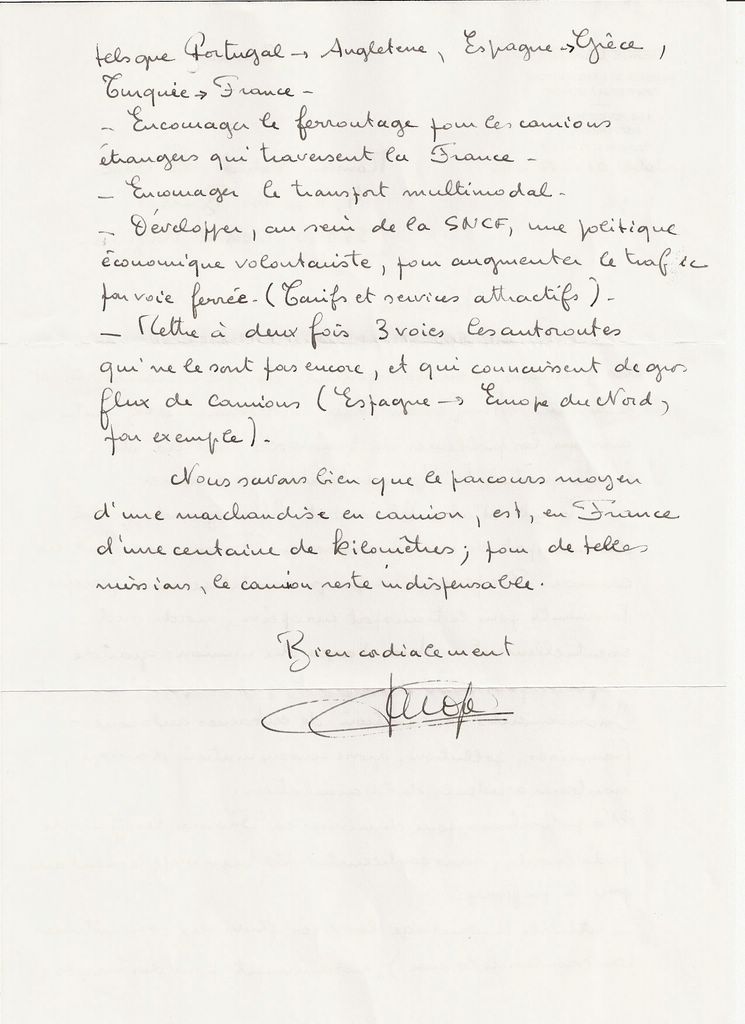 tels que Portugal → Angleterre, Espagne → Grèce,
Turquie → France -
- Encourager le ferroutage pour les camions
étrangers qui traversent la France -
- Encourager le transport multimodal -
- Développer, au sein de la SNCF, une politique
économique volontariste, pour augmenter le trafic
par voie ferrée - (Tarifs et services attractifs) -
- Mettre à deux fois 3 voies les autoroutes
qui ne le sont pas encore, et qui connaissent de gros
flux de camions (Espagne → Europe du Nord,
par exemple) -
Nous savons bien que le parcours moyen
d'une marchandise en camion, est, en France
d'une centaine de kilomètres ; pour de telles
missions, le camion reste indispensable.
Bien cordialement